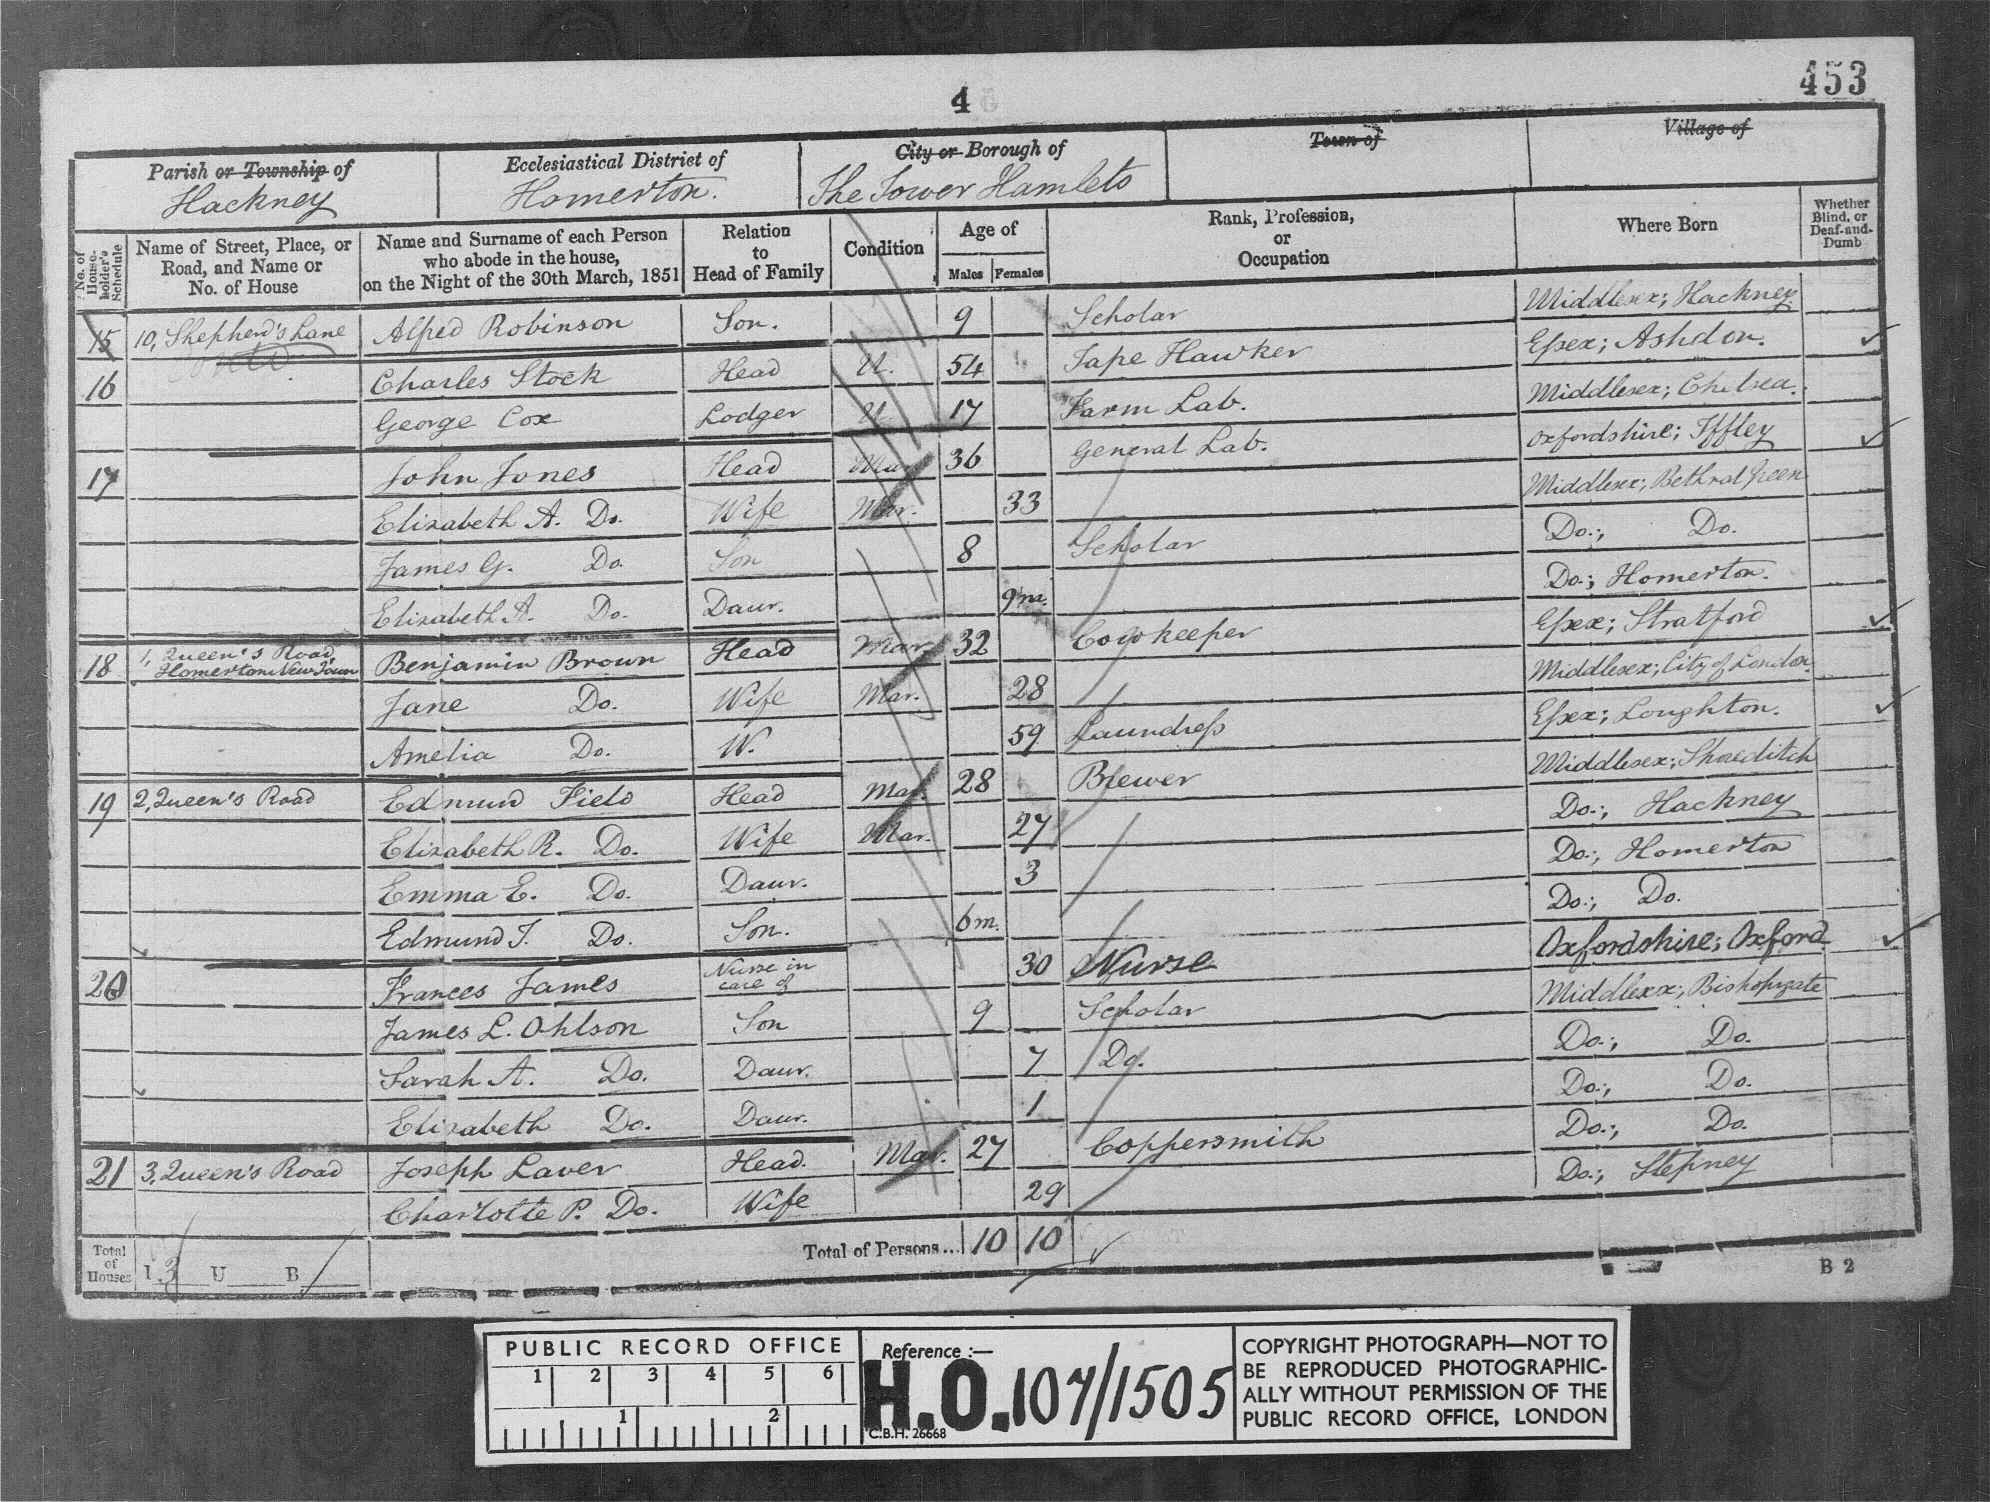 453
4
Parish or Township of
Hackney
Ecclesiastical District of
Homerton.
City or Borough of
The Tower Hamlets
Town of
Village of
No. of Householder's Schedule
Name of Street, Place, or Road, and Name or No. of House
Name and Surname of each Person who abode in the house, on the Night of the 30th March, 1851
Relation to Head of Family
Condition
Age of
Males Females
Rank, Profession, or Occupation
Where Born
Whether Blind, or Deaf-and-Dumb
15 10, Shepherd's Lane Alfred Robinson Son. 9 Scholar Middlesex; Hackney
16 Charles Stock Head U. 54 Tape Hawker Eſsex; Ashdon.
George Cox Lodger U 17 Farm Lab. Middlesex; Chelsea.
17 John Jones Head Mar 36 General Lab. Oxfordshire; Iffley
Elizabeth A. Do. Wife Mar. 33 Middlesex; Bethnal Green
James G. Do. Son 8 Scholar Do.; Do.
Elizabeth A. Do. Daur. 9m. Do.; Homerton.
18 1, Queen's Road, Homerton New Town Benjamin Brown Head Mar. 32 Cowkeeper Eſsex; Stratford
Jane Do. Wife Mar. 28 Middlesex; City of London.
Amelia Do. W. 59 Laundreſs Eſsex; Loughton.
19 2, Queen's Road Edmund Field Head Mar. 28 Brewer Middlesex; Shoreditch
Elizabeth R. Do. Wife Mar. 27 Do.; Hackney
Emma E. Do. Daur. 3 Do.; Homerton
Edmund T. Do. Son. 6m. Do.; Do.
20 Frances James Nurse in care of 30 Nurse Oxfordshire; Oxford
James L. Ohlson Son 9 Scholar Middlesex; Bishopsgate
Sarah A. Do. Daur. 7 Do. Do.; Do.
Elizabeth Do. Daur. 1 Do.; Do.
21 3, Queen's Road Joseph Laver Head. Mar. 27 Coppersmith Do.; Do.
Charlotte P. Do. Wife 29 Do.; Stepney
Total of Houses I 3 U B
Total of Persons... 10 10
B 2
PUBLIC RECORD OFFICE
1 2 3 4 5 6
1 2
Reference :—
H.O. 107/1505
C.B.H. 26668
COPYRIGHT PHOTOGRAPH—NOT TO
BE REPRODUCED PHOTOGRAPHIC-
ALLY WITHOUT PERMISSION OF THE
PUBLIC RECORD OFFICE, LONDON